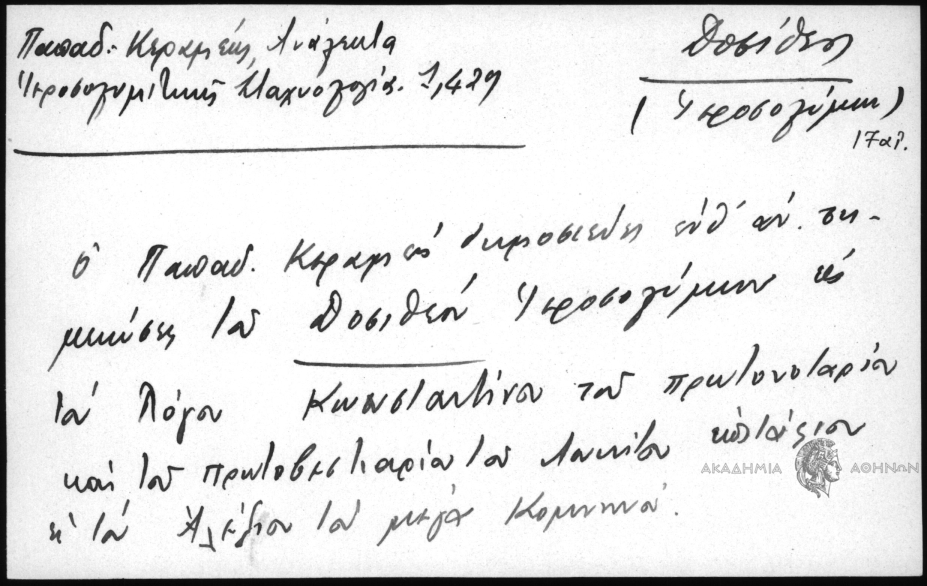 Παπαδ. Κεραμεύς, Ανάλεκτα
Ἱεροσολυμιτικῆς Σταχυολογίας. 1,429
Δοσίθεος
(Ἱεροσολύμων)
17 αἰ.
ὁ Παπαδ. Κεραμεύς δημοσιεύει ἐνθ' ἀν. ση-
μειώσεις τοῦ Δοσιθέου Ἱεροσολύμων εἰς
τόν Λόγον Κωνσταντίνου τοῦ πρωτονοταρίου
καί τοῦ πρωτοβεστιαρίου τοῦ Λουκίτου
ΑΚΑΔΗΜΙΑ ΑΘΗΝΩΝ
εἰς τόν Ἀλέξιον τόν μέγα Κομνηνό.